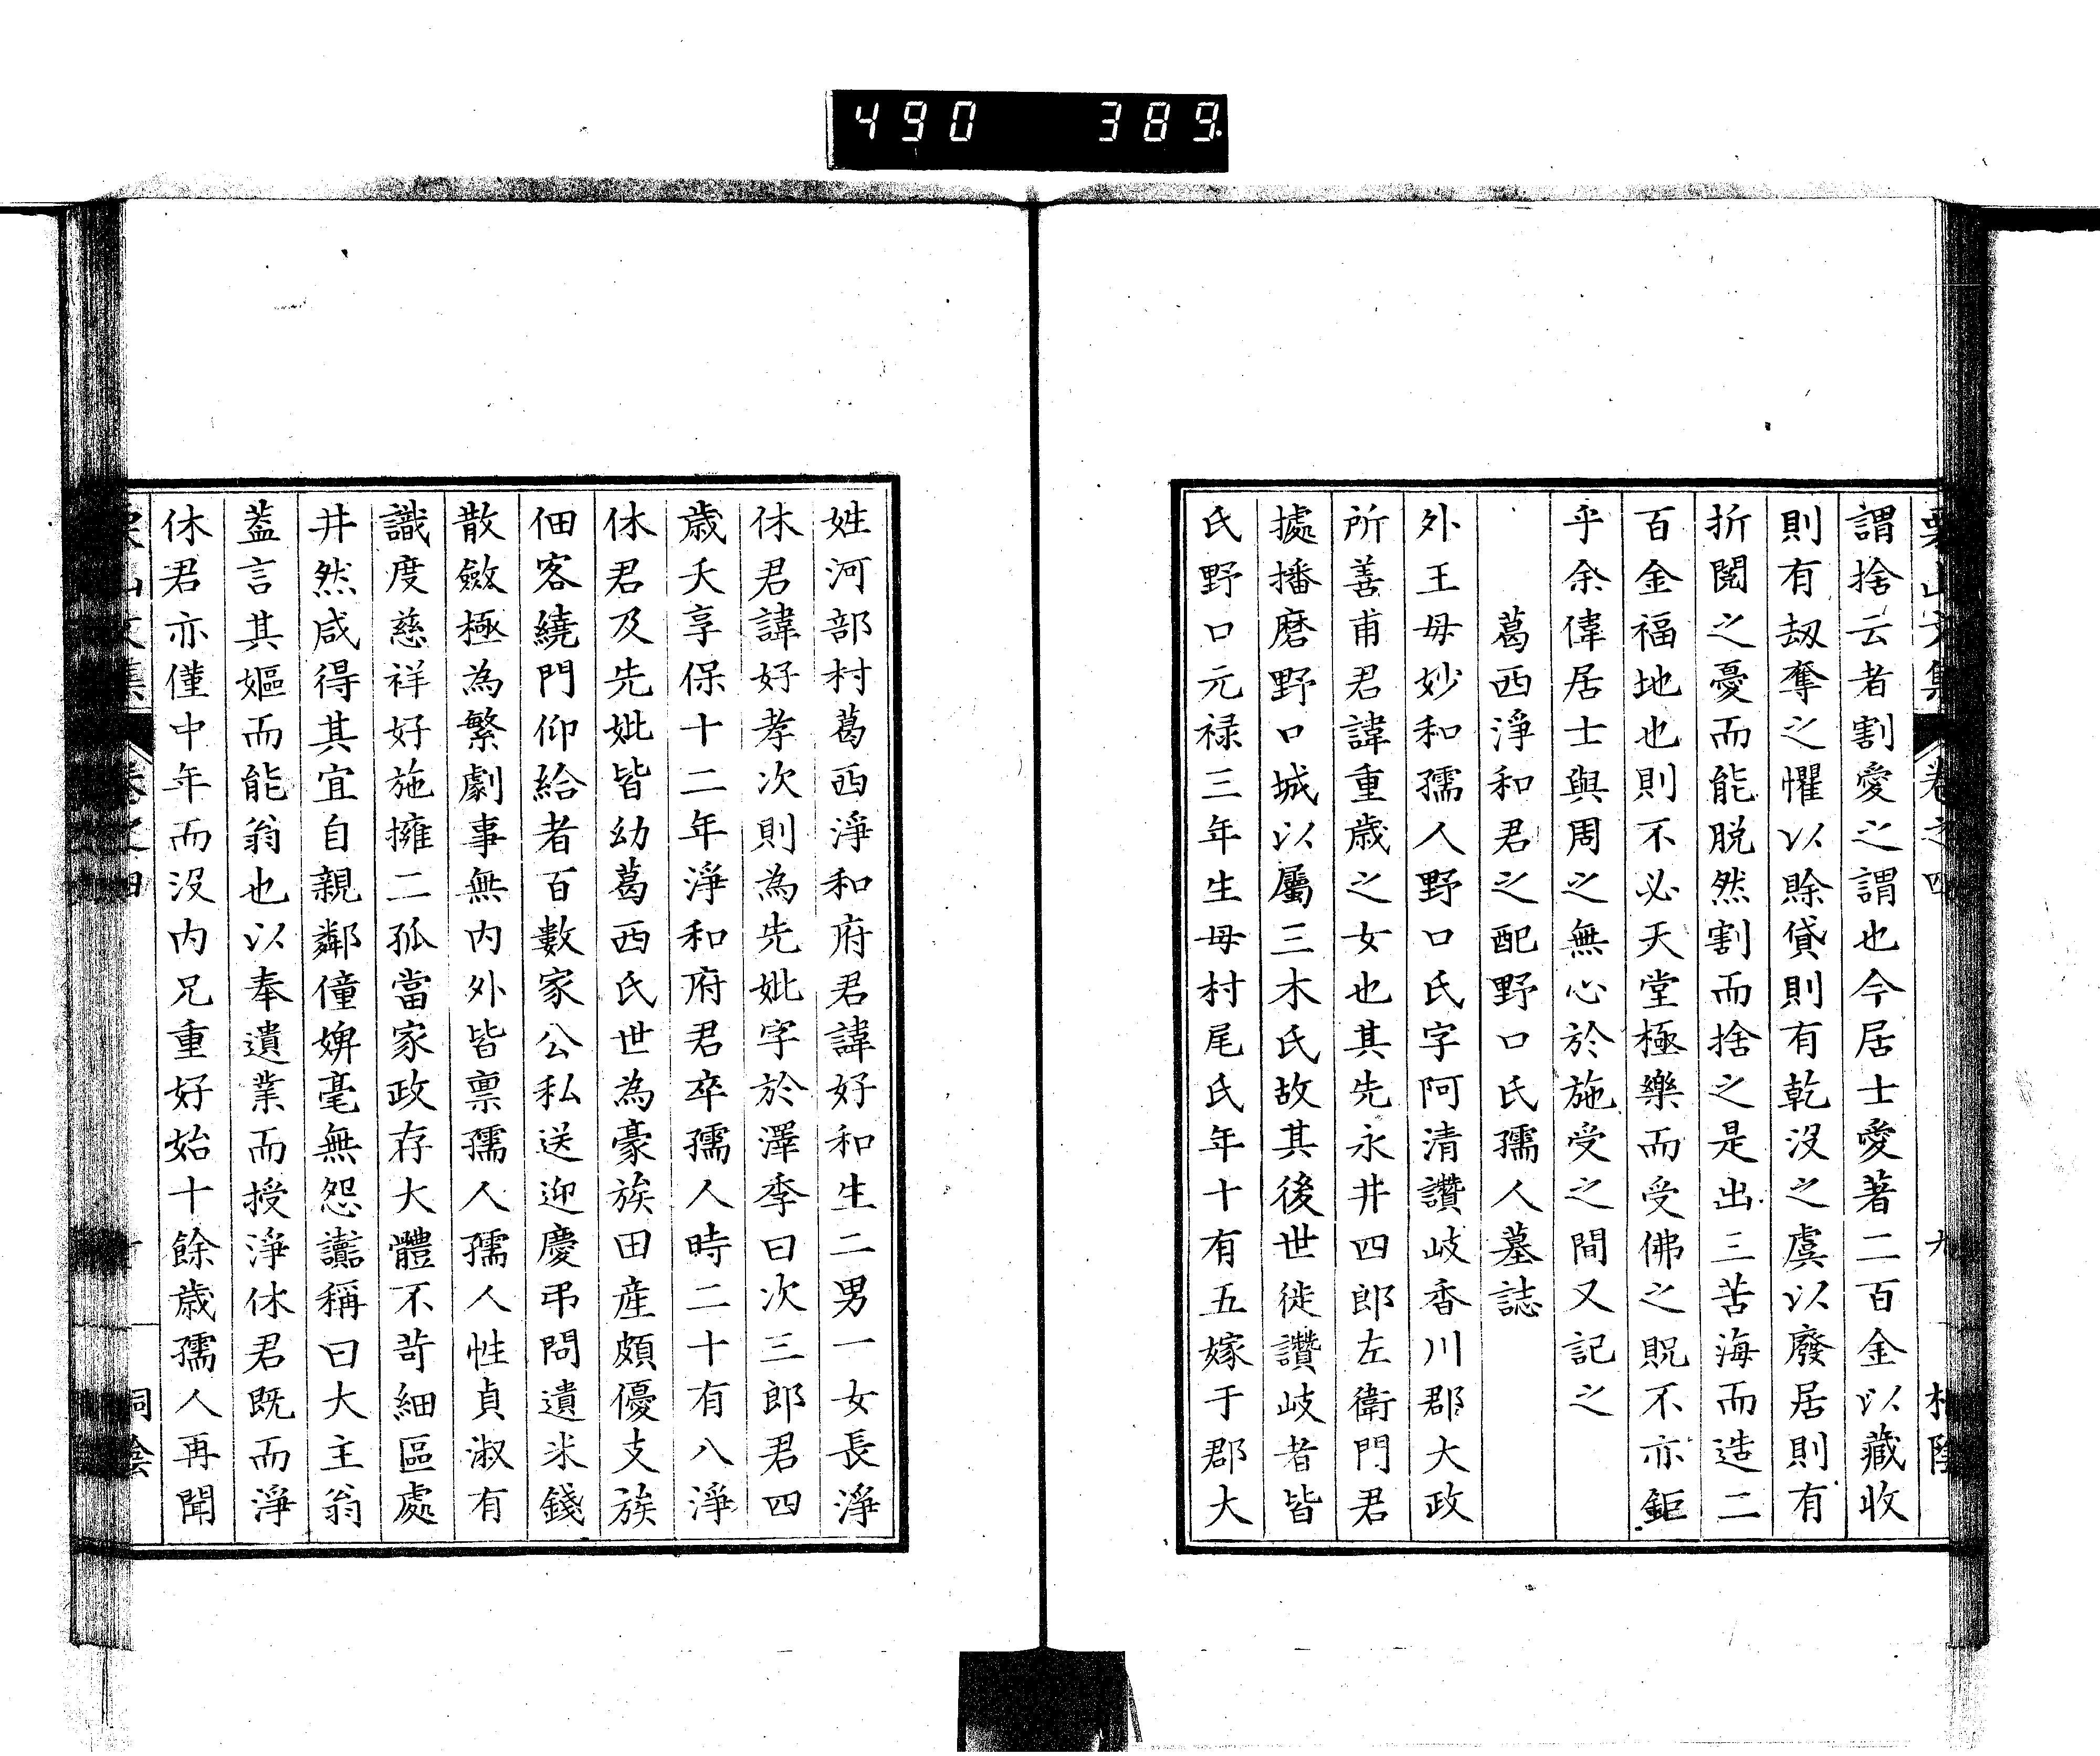 490 389.
謂捨云者割愛之謂也今居士愛著二百金以藏收
則有刼奪之懼以賒貸則有乾沒之虞以廢居則有
折閱之憂而能脱然割而捨之是出三苦海而造二
百金福地也則不必天堂極樂而受佛之貺不亦鉅
乎余偉居士與周之無心於施受之間又記之
葛西淨和君之配野口氏孺人墓誌
外王母妙和孺人野口氏字阿清讚岐香川郡大政
所善甫君諱重歲之女也其先永井四郎左衛門君
據播磨野口城以屬三木氏故其後世徙讚岐者皆
氏野口元禄三年生母村尾氏年十有五嫁于郡大
姓河部村葛西淨和府君諱好和生二男一女長淨
休君諱好孝次則為先妣字於澤季曰次三郎君四
歲夭享保十二年淨和府君卒孺人時二十有八淨
休君及先妣皆幼葛西氏世為豪族田産頗優支族
佃客繞門仰給者百數家公私送迎慶弔問遺米錢
散斂極為繁劇事無内外皆稟孺人孺人性貞淑有
識度慈祥好施擁二孤當家政存大體不苛細區處
井然咸得其宜自親鄰僮婢毫無怨讟稱曰大主翁
蓋言其嫗而能翁也以奉遺業而授淨休君既而淨
休君亦僅中年而沒内兄重好始十餘歲孺人再聞